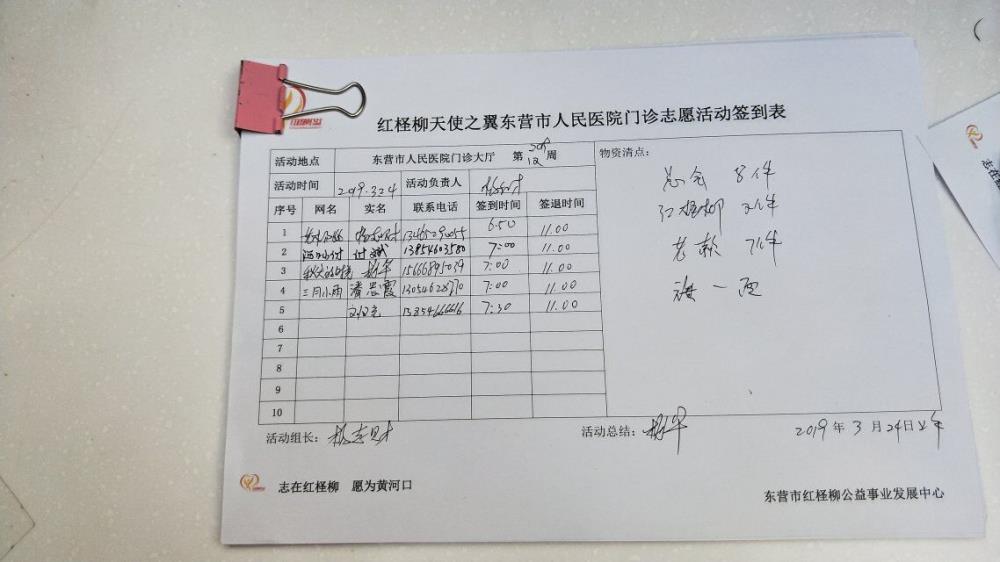 红柽柳天使之翼东营市人民医院门诊志愿活动签到表
活动地点 东营市人民医院门诊大厅 第 12 周 物资清点：
活动时间 2019.3.24 活动负责人
总会 8件
序号 网名 实名 联系电话 签到时间 签退时间
红柽柳 21件
1 6:50 11.00
2 付斌 13854603580 7:00 11.00
老款 7件
3 15666895039 7:00 11.00
4 三月小雨 潘思霞 7:00 11.00
旗一面
5 13854666616 7:30 11.00
6
7
8
9
10
活动组长： 活动总结： 2019年3月24日上午
志在红柽柳 愿为黄河口
东营市红柽柳公益事业发展中心